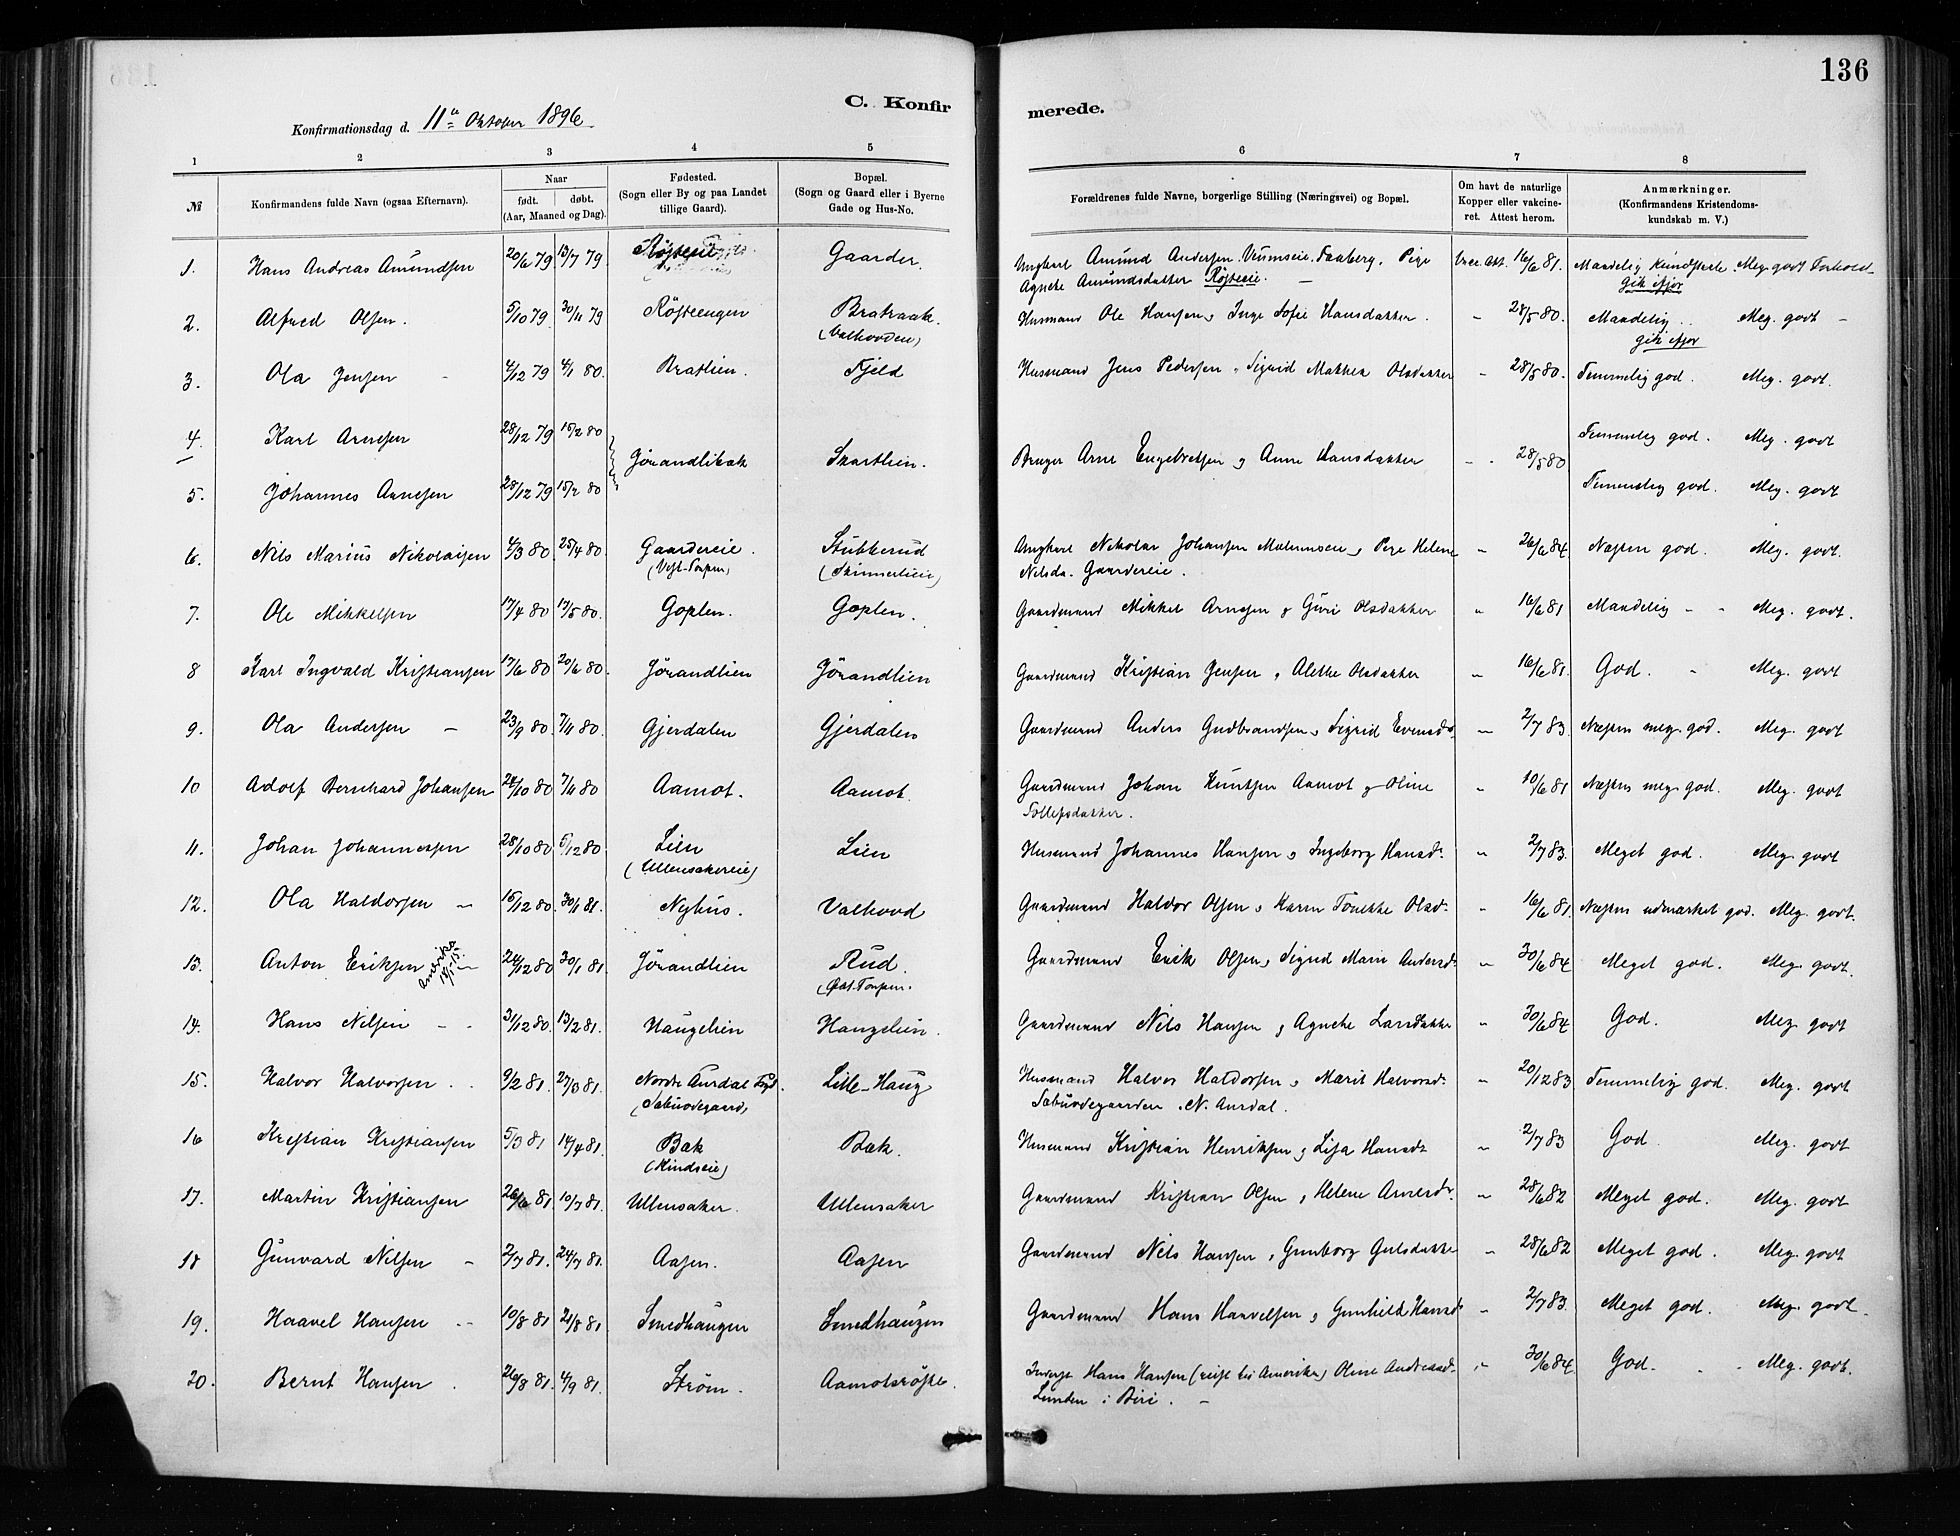 136
C. Konfir
merede.
Konfirmationsdag d. 11te Oktober 1896
1 2 3 4 5 6 7 8
№ Konfirmandens fulde Navn (ogsaa Efternavn). Naar født. døbt. (Aar, Maaned og Dag). Fødested. (Sogn eller By og paa Landet tillige Gaard). Bopæl. (Sogn og Gaard eller i Byerne Gade og Hus-No. Forældrenes fulde Navne, borgerlige Stilling (Næringsvei) og Bopæl. Om havt de naturlige Kopper eller vakcineret. Attest herom. Anmærkninger. (Konfirmandens Kristendomskundskab m. V.)
1. Hans Andreas Amundsen 20/6 79 13/7 79 Gaarder. Ungkarl Amund Andersen Veumseie. Faaberg. Pige Vacc. Att. 16/6 81. Maadelig Kundskab. Meg. godt Forhold
Agnete Amundsdatter Røsteeie. – gik ifjor
2. Alfred Olsen. 5/10 79 30/11 79 Røsteengen Bratraak. Husmand Ole Hansen og Inge Sofie Hansdatter. " 28/5 80. Maadelig.. Meg. godt –
(Valhovden) gik ifjor
3. Ola Jensen – 4/12 79 4/1 80. Bratlien. Fjeld Husmand Jens Pedersen og Sigrid Mathea Olsdatter " 28/5 80. Temmelig god. Meg. godt.
4. Karl Arnesen 28/12 79 15/2 80 Temmelig god. Meg. godt
Jörandlibak Skartlien. Bruger Arne Engebretsen og Anne Hansdatter – " 28/5 80
5. Johannes Arnesen 28/12 79 15/2 80 Temmelig god. Meg. godt
6. Nils Marius Nikolaisen 4/3 80 25/4 80. Gaardereie. Stubberud Ungkarl Nikolai Johansen og Pige Helene " 26/6 84. Næsten god. Meg. godt.
(Vest-Torpen) (Skinnerlieie) Nilsda. Gaardereie.
7. Ole Mikkelsen 17/4 80 17/5 80. Goplen. Goplen. Gaardmand Mikkel Arnesen og Guri Olsdatter " 16/6 81 Maadelig – – Meg. godt.
8 Karl Ingvald Kristiansen 17/6 80 20/6 80. Jörandlien Jörandlien Gaardmand Kristian Jensen og Alethe Olsdatter " 16/6 81. God. – Meg. godt
9. Ola Andersen – 23/9 80 7/11 80. Gjerdalen Gjerdalen Gaardmand Anders Gudbrandsen og Sigrid Evensd. " 2/7 83. Næsten meg. god. Meg. godt
10 Adolf Bernhard Johansen 24/10 80 7/11 80 Aamot. Aamot. Gaardmand Johan Knutsen Aamot og Oline " 10/6 81 Næsten meg. god. Meg. godt
Tollefsdatter.
11. Johan Johannessen 28/10 80 5/12 80 Lien Lien Husmand Johannes Hansen og Ingeborg Hansd. " 2/7 83. Meget god. Meg. godt
(Ullensakereie)
12. Ola Haldorsen – 15/12 80. 30/1 81. Nyhus. Valhovd Gaardmand Haldor Olsen og Karen Tonette Olsd. " 16/6 81. Næsten udmærket god. Meg. godt.
13. Anton Eriksen – 24/12 80 30/1 81. Jörandlien Rud. Gaardmand Erik Olsen og Sigrid Marie Andersd. " 30/6 84 Meget god. Meg. godt.
Amerika 18/1 15. (Øst-Torpen.
14. Hans Nilsen – . 31/12 80. 13/2 81. Haugelien Haugelien. Gaardmand Nils Hansen og Agnethe Larsdatter " 30/6 84 God. Meg. godt
15. Halvor Halvorsen . . 9/2 81. 27/3 81. Nordre Aurdal Lille-Haug Husmand Halvor Haldorsen og Marit Halvorsd. " 20/12 83 Temmelig god. Meg. godt
(Sæbuødegaard) Sæbuødegaarden. N. Aurdal.
16 Kristian Kristiansen 5/3 81 14/4 81. Bæk Bæk. Husmand Kristian Henriksen og Lisa Hansd. " 2/7 83 God. Meg. godt
(Kindseie)
17. Martin Kristiansen 26/6 81. 10/7 81. Ullensaker. Ullensaker Gaardmand Kristian Olsen og Helene Arnesd. " 28/6 82 Meget god. Meg. godt
18 Gunvard Nilsen – 2/7 81. 24/7 81. Aasen. Aasen Gaardmand Nils Hansen og Gunborg Gulsdatter " 28/6 82 Meget god. Meg. godt
19. Haavel Hansen – 10/8 81 21/8 81. Smedhaugen Smedhaugen Gaardmand Hans Haavelsen og Gunhild Hansd. " 2/7 83. Meget god. Meg. godt.
20. Bernt Hansen . 26/8 81. 4/9 81. Strøm. Aamotsröste. Inderst Hans Hansen (reist til Amerika) Oline Andreasd. " 30/6 84. God. – Meg. godt.
Lunden i Biri. –